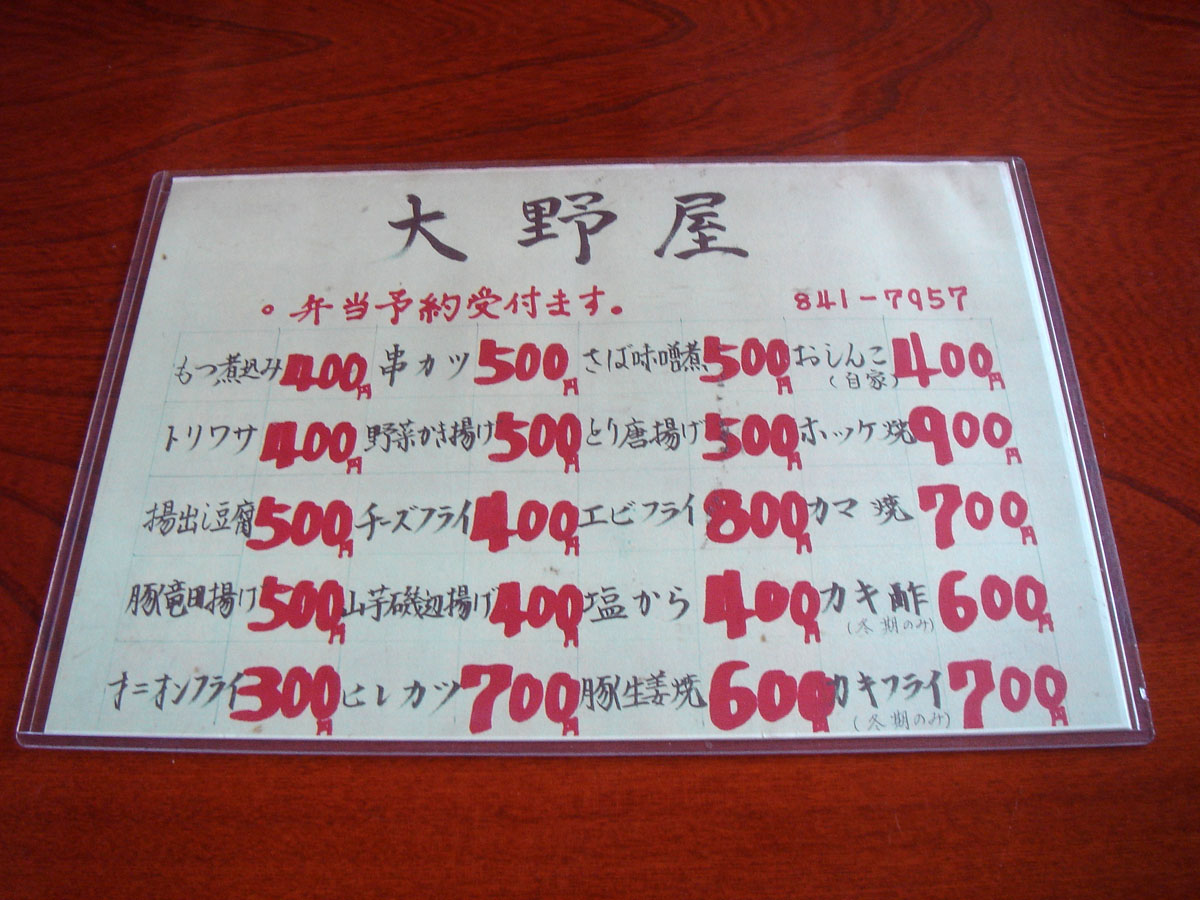 大野屋
。弁当予約受付ます。 841-7957
もつ煮込み 400円 串カツ 500円 さば味噌煮 500円 おしんこ(自家) 400円
トリワサ 400円 野菜かき揚げ 500円 とり唐揚げ 500円 ホッケ焼 900円
揚出し豆腐 500円 チーズフライ 400円 エビフライ 800円 カマ焼 700円
豚竜田揚げ 500円 山芋磯辺揚げ 400円 塩から 400円 カキ酢(冬期のみ) 600円
オニオンフライ 300円 ヒレカツ 700円 豚生姜焼 600円 カキフライ(冬期のみ) 700円